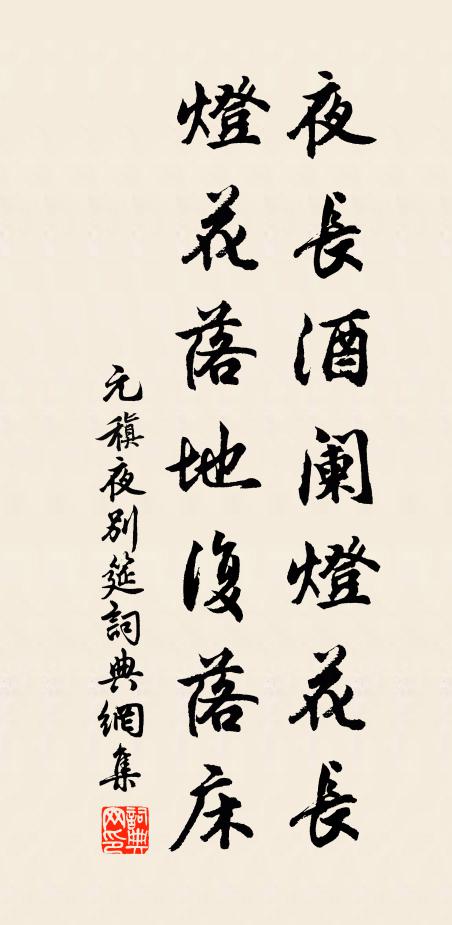 夜長酒闌燈花長
燈花落地復落床
元稹夜别筵詞典網集
詞典
网印